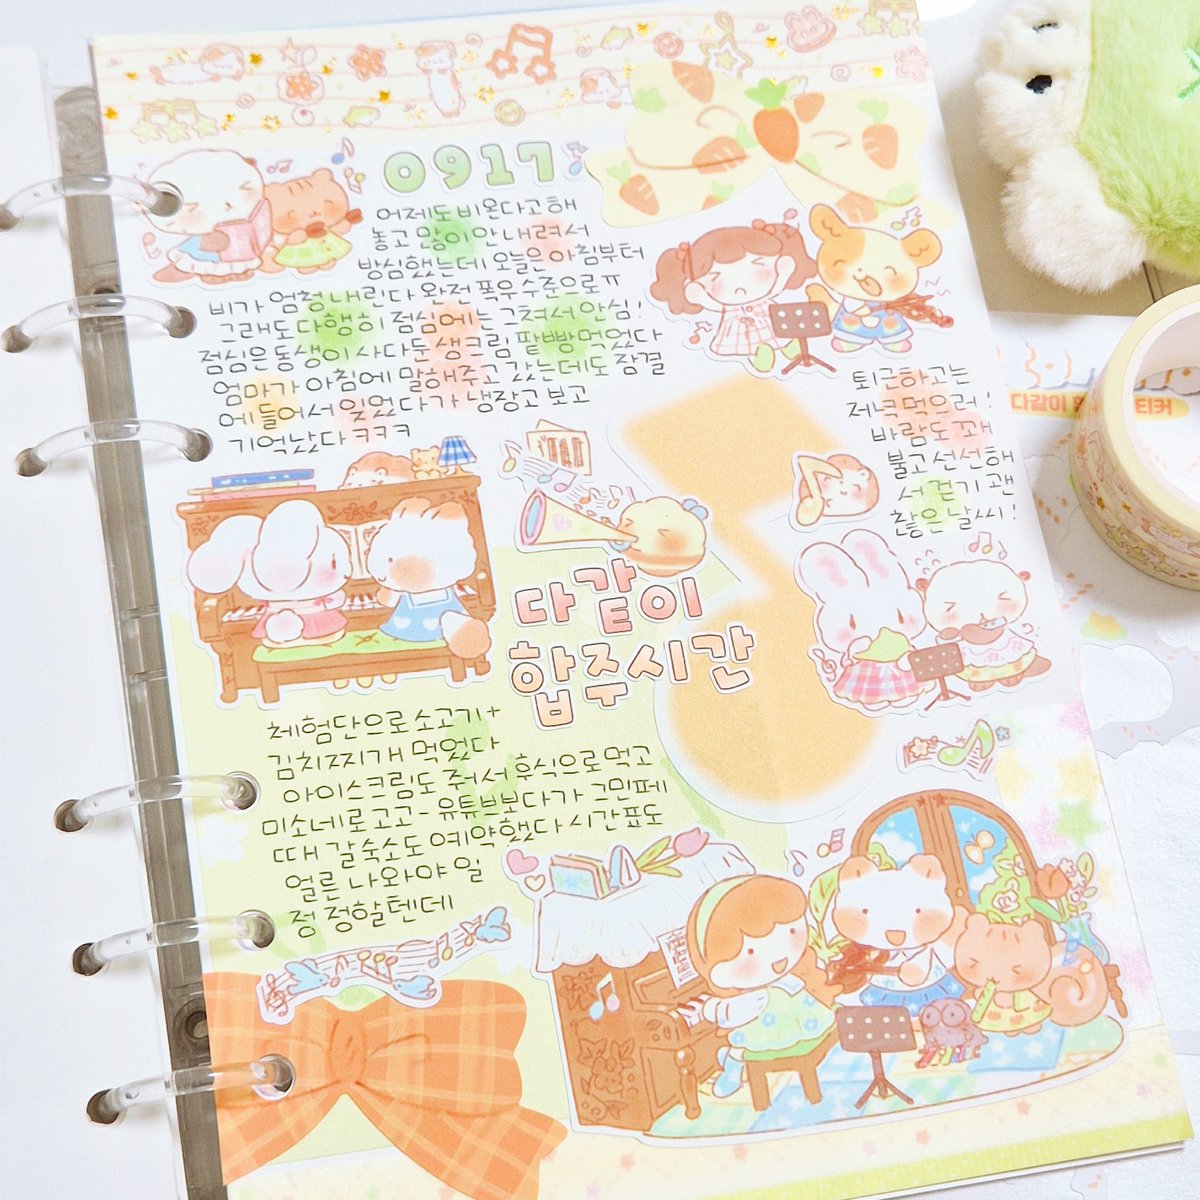 0917
어제도 비온다고해
놓고 많이 안 내려서
방심했는데 오늘은 아침부터
비가 엄청 내린다 완전 폭우수준으로ㅠ
그래도 다행히 점심에는 그쳐서 안심!
점심은 동생이 사다둔 생크림 팥빵 먹었다
엄마가 아침에 말해주고 갔는데도 잠결
에 들어서 잊었다가 냉장고 보고
기억났다 ㅋㅋㅋ
퇴근하고는
저녁 먹으러!
바람도 꽤
불고 선선해
서 걷기 괜
찮은 날씨!
다같이
합주시간
체험단으로 소고기+
김치찌개 먹었다
아이스크림도 줘서 후식으로 먹고
미소네로 고고- 유튜브보다가 그민페
때 갈 숙소도 예약했다 시간표도
얼른 나와야 일
정 정할텐데
다같이
티커